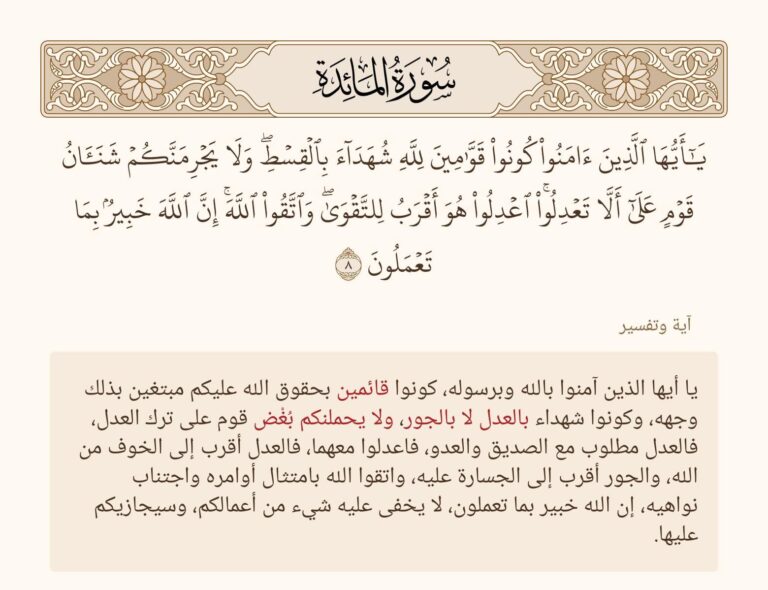 سُورَةُ المَائِدَةِ
يَـٰٓأَيُّهَا ٱلَّذِينَ ءَامَنُوا۟ كُونُوا۟ قَوَّٰمِينَ لِلَّهِ شُهَدَآءَ بِٱلْقِسْطِۖ وَلَا يَجْرِمَنَّكُمْ شَنَـَٔانُ
قَوْمٍ عَلَىٰٓ أَلَّا تَعْدِلُوا۟ۚ ٱعْدِلُوا۟ هُوَ أَقْرَبُ لِلتَّقْوَىٰۖ وَٱتَّقُوا۟ ٱللَّهَۚ إِنَّ ٱللَّهَ خَبِيرٌۢ بِمَا
تَعْمَلُونَ ٨
آية وتفسير
يا أيها الذين آمنوا بالله وبرسوله، كونوا قائمين بحقوق الله عليكم مبتغين بذلك
وجهه، وكونوا شهداء بالعدل لا بالجور، ولا يحملنكم بُغْض قوم على ترك العدل،
فالعدل مطلوب مع الصديق والعدو، فاعدلوا معهما، فالعدل أقرب إلى الخوف من
الله، والجور أقرب إلى الجسارة عليه، واتقوا الله بامتثال أوامره واجتناب
نواهيه، إن الله خبير بما تعملون، لا يخفى عليه شيء من أعمالكم، وسيجازيكم
عليها.